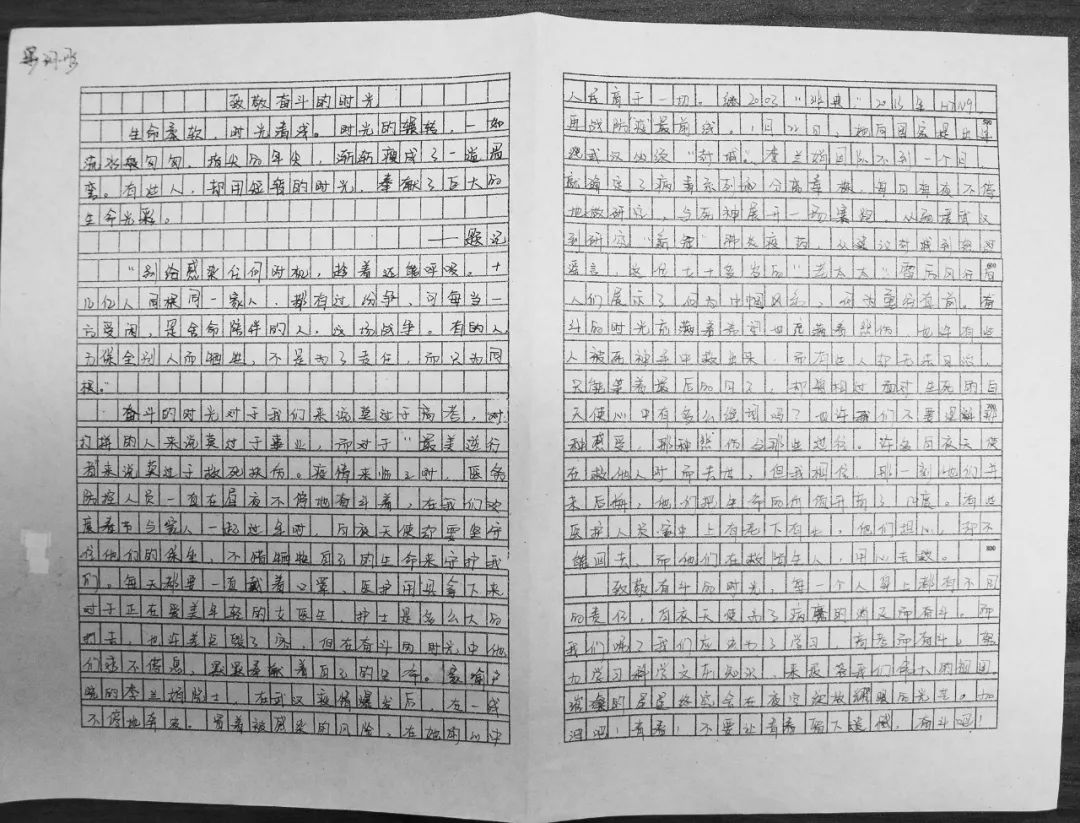 致敬奋斗的时光
生命柔软，时光看浅。时光的辗转，一如
流水般匆匆，指尖的年尖，渐渐
变。有些人，却用短暂的时光，奉献了巨大的
生命光彩。
——题记
“别给感染任何时机，趁着还能呼吸。十
几亿人同根同一家人，都有过纷争，可每当一
方受困，是舍命陪伴的人，这场战争。有的人
为保全别人而牺牲，不是为了责任，而只为同
根。”
奋斗的时光对于我们来说莫过于高考，对
打拼的人来说莫过于事业，而对于“最美逆行
者来说莫过于救死扶伤。疫情来临之时，医务
防控人员一直在昼夜不停地奋斗着，在我们欢
度春节与家人一起过年时，白衣天使却要坚守
住他们的使命，不惜牺牲自己的生命来守护我
们。每天都要一直戴着口罩，医护用具拿下来
对于正在爱美年轻的女医生，护士是多么大的
，也许差点毁了容，但在奋斗的时光中他
们从不停息，默默奉献着自己的
的李兰娟院士，在武汉疫情爆发后，在一线
不停地奔波。冒着被感染的风险，在她的心中
人民高于一切。继2003“非典”2013年H7N9
再战防“疫”最前线。1月22日，她向国家提出
武汉必须“封城”。李兰娟团队不到一个月，
就确定了病毒序列和分离毒株，每日每夜不停
地做研究，与死神展开一场赛跑，从
到研究“新冠”肺炎疫苗，从建议封城到
，这位七十多岁的“老太太”
人们展示了何为中国风，何为
斗的时光充满着希望也充满着悲伤，也许有些
人被死神手中救出来，而有些人却无法自治，
只能等着最后的日子，却曾想过面对生死的白
天使心中有多么绝望吗？也许我们不要
种感受，那种悲伤与那些过往。许多白衣天使
在救他人时而去世，但我相信那一刻他们并
未后悔，他们把生命的价值升高了几度。有些
医护人员家中上有老下有小，他们担心，却不
能回去，而他们在救陌生人，用心去救。
致敬奋斗的时光，每一个人身上都有不同
的责任，白衣天使为了病魔的消灭而奋斗。而
我们呢？我们应当为了学习，高考而奋斗。努
力学习科学文化知识，来报答我们伟大的祖国
璀璨的星星终究会在夜空绽放耀眼的光芒。加
油吧！青春！不要让青春留下遗憾，奋斗吧！
500
600
700
800